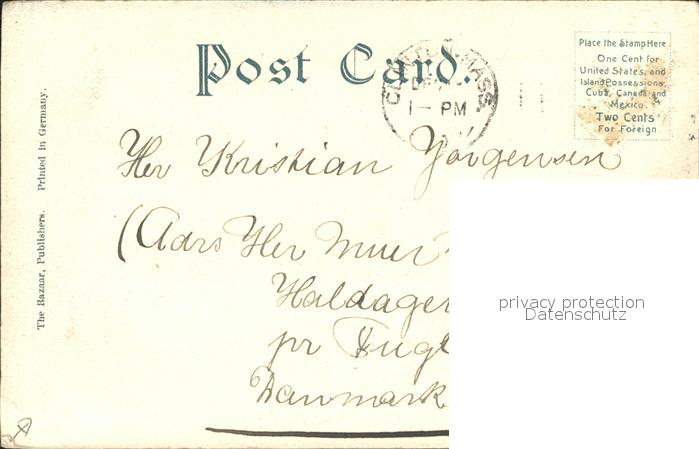 Post Card.
CLINTON, MASS.
1 - PM
Place the Stamp Here
One Cent for
United States, and
Island Possessions,
Cuba, Canada and
Mexico.
Two Cents
For Foreign.
The Bazaar, Publishers. Printed in Germany.
Her Kristian Yorgensen
(Adrs Her Muer
Haldager
pr Fugl
Danmark
privacy protection
Datenschutz